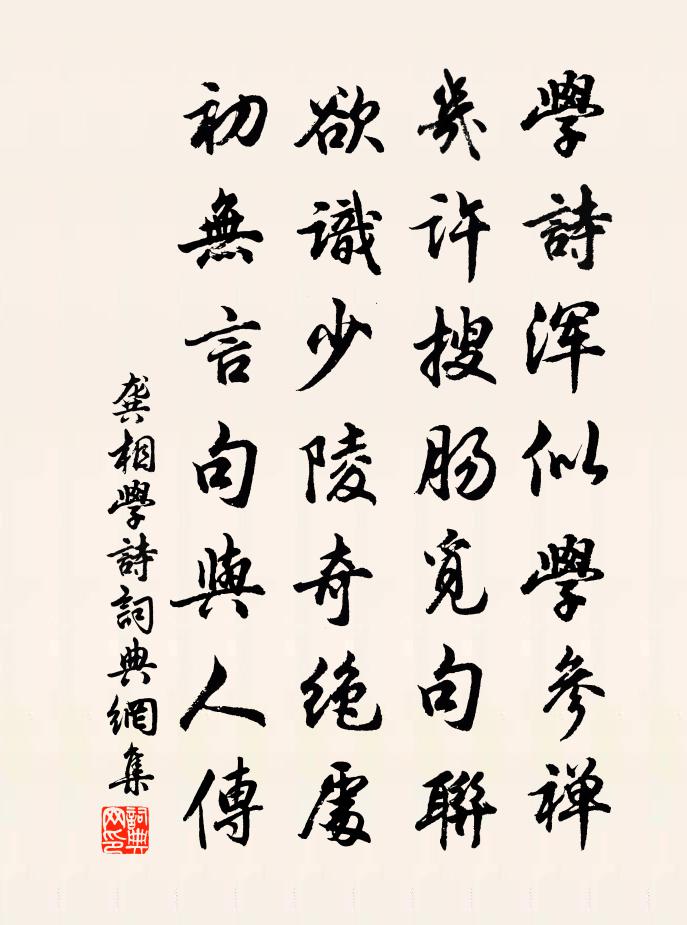 學詩渾似學參禅
幾許搜腸覓句聯
欲識少陵奇絶處
初無言句與人傳
龔相學詩詞典網集
詞典网印